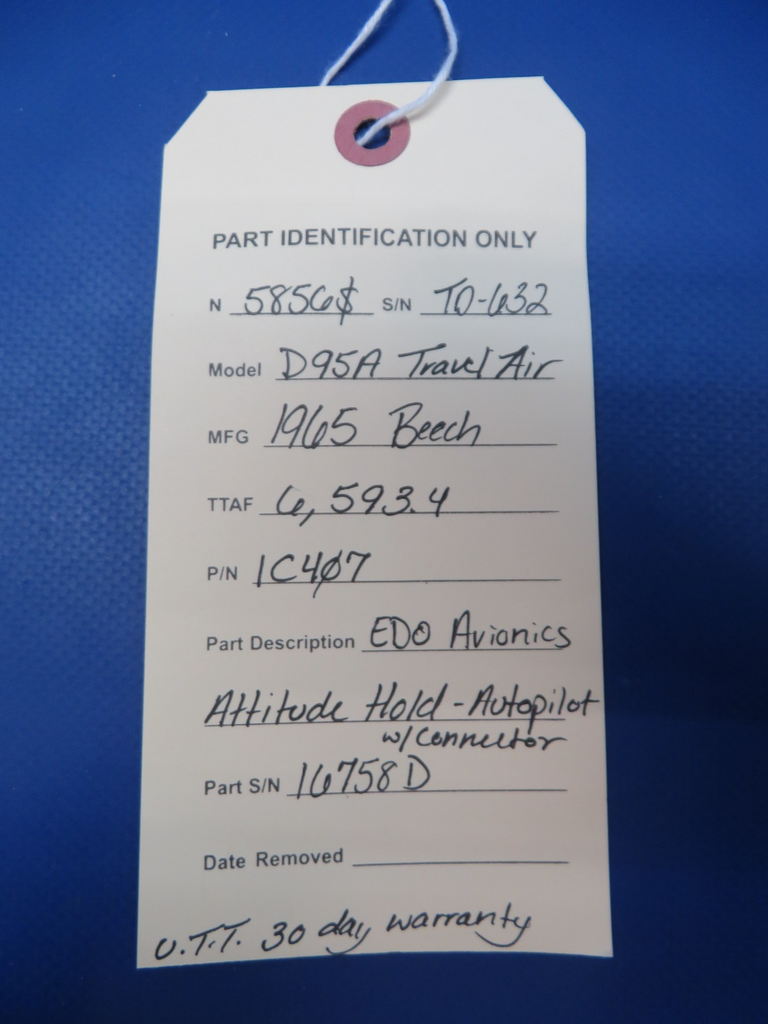 PART IDENTIFICATION ONLY
N 5856S S/N TD-632
Model D95A Travel Air
MFG 1965 Beech
TTAF 6,593.4
P/N 1C4Ø7
Part Description EDO Avionics
Attitude Hold - Autopilot
w/connector
Part S/N 16758D
Date Removed
U.T.T. 30 day warranty